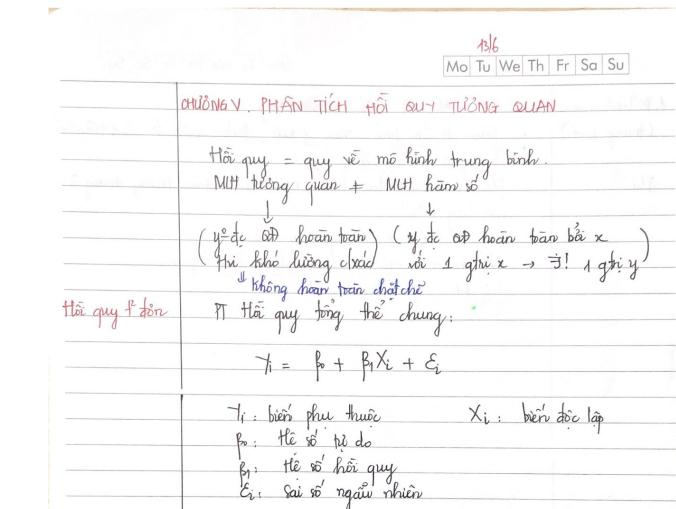 13/6
Mo Tu We Th Fr Sa Su
CHƯƠNG V. PHÂN TÍCH HỒI QUY TƯƠNG QUAN
Hồi quy = quy về mô hình trung bình.
MLH tương quan ≠ MLH hàm số
↓ ↓
(y ko đc QĐ hoàn toàn) (y đc QĐ hoàn toàn bởi x
thì khó lường c/xác với 1 gtrị x → ∃! 1 gtrị y)
↓ không hoàn toàn chặt chẽ
Hồi quy t² đơn
PT Hồi quy tổng thể chung:
Yi = β0 + β1Xi + εi
Yi: biến phụ thuộc Xi: biến độc lập
β0: Hệ số tự do
β1: Hệ số hồi quy
εi: Sai số ngẫu nhiên